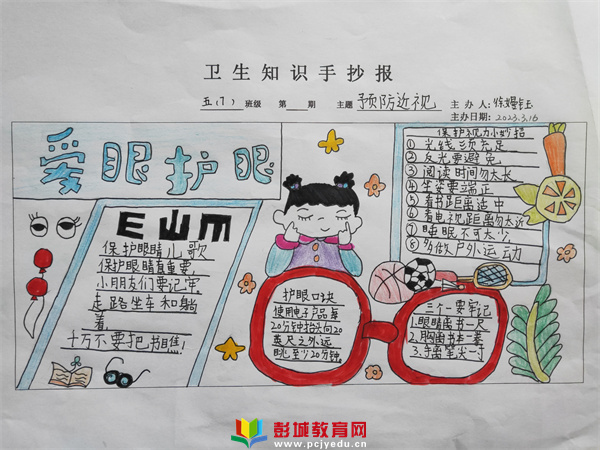 卫生知识手抄报
五(7)班级 第 期 主题 预防近视 主办人
主办日期: 2023.3.16
爱眼护眼
E Ш m
保护眼睛儿歌
保护眼睛有重要,
小朋友们要记牢
走路坐车和躺
着
千万不要把书瞧!
护眼口诀
使用电子产品每
20分钟抬头向20
英尺之外远
眺,至少20分钟。
保护视力小妙招
①光线须充足
②反光要避免
③阅读时间勿太长
④坐姿要端正
⑤看书距离适中
⑥看电视距离勿太近
⑦睡眠不可太少
⑧多做户外运动
三个一要牢记
1.眼睛离书一尺
2.胸离书本一拳
3.手离笔尖一寸
彭城教育网
www.pcjyedu.cn